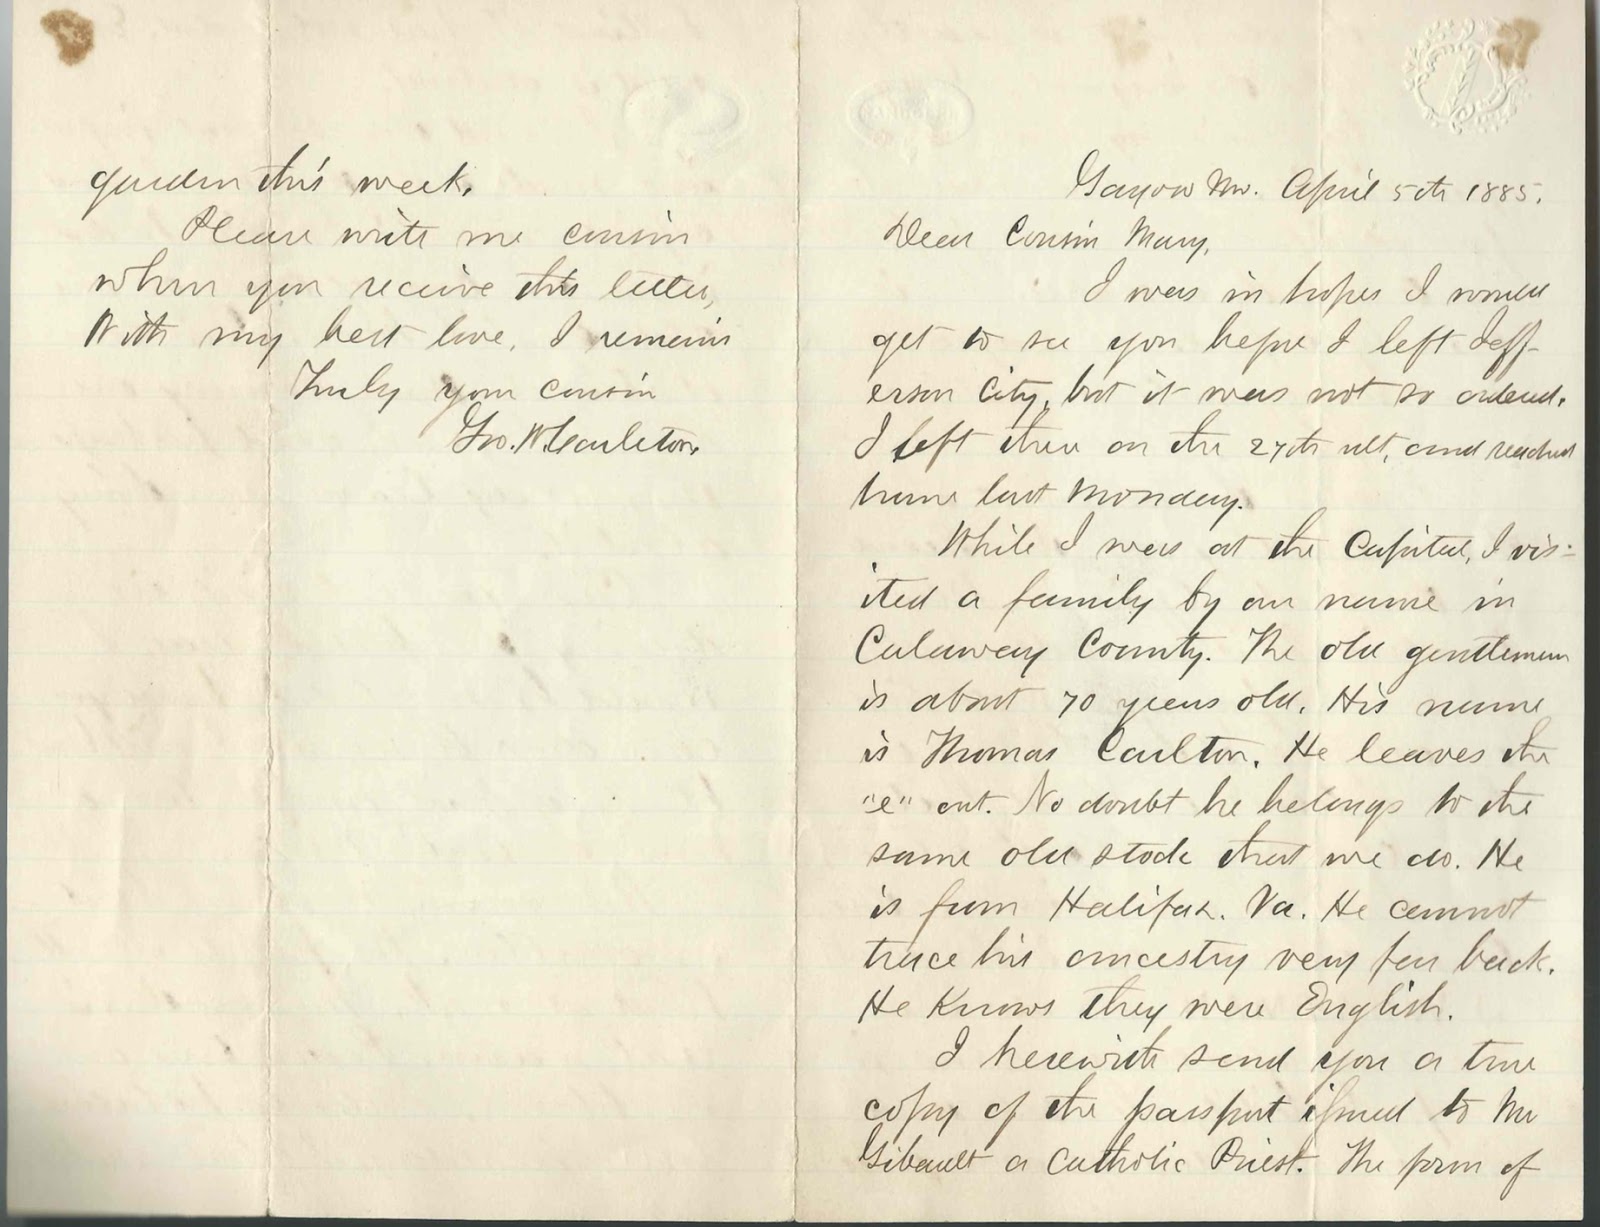 Gayoso Mo. April 5th 1885.
Dear Cousin Mary,
I was in hopes I would
get to see you before I left Jeff-
erson City, but it was not so ordered.
I left there on the 27th ult, and reached
home last Monday.
While I was at the Capital, I vis-
ited a family by our name in
Calaway County. The old gentleman
is about 70 years old. His name
is Thomas Carlton. He leaves the
"e" out. No doubt he belongs to the
same old stock that we do. He
is from Halifax. Va. He cannot
trace his ancestry very far back.
He knows they were English.
I herewith send you a true
copy of the passport issued to Mr
Gibault a Catholic Priest. The form of
garden this week.
Please write me cousin
when you receive this letter,
With my best love, I remain
Truly your cousin
Geo. W. Carleton.